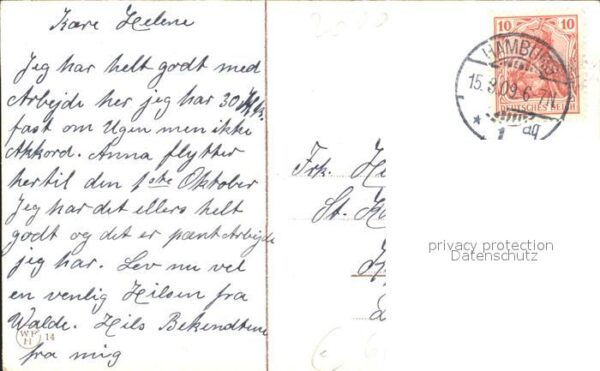 Kære Helene
Jeg har helt godt med
Arbejde her jeg har 30 Mk.
fast om Ugen men ikke
Akkord. Anna flytter
hertil den 1ste Oktober
Jeg har det ellers helt
godt og det er pænt Arbejde
jeg har. Lev nu vel
en venlig Hilsen fra
Walde. Hils Bekendtene
fra mig
14
10 10
DEUTSCHES REICH
HAMBURG
15.9.09.6-7N.
1
Frk. He
St.
privacy protection
Datenschutz